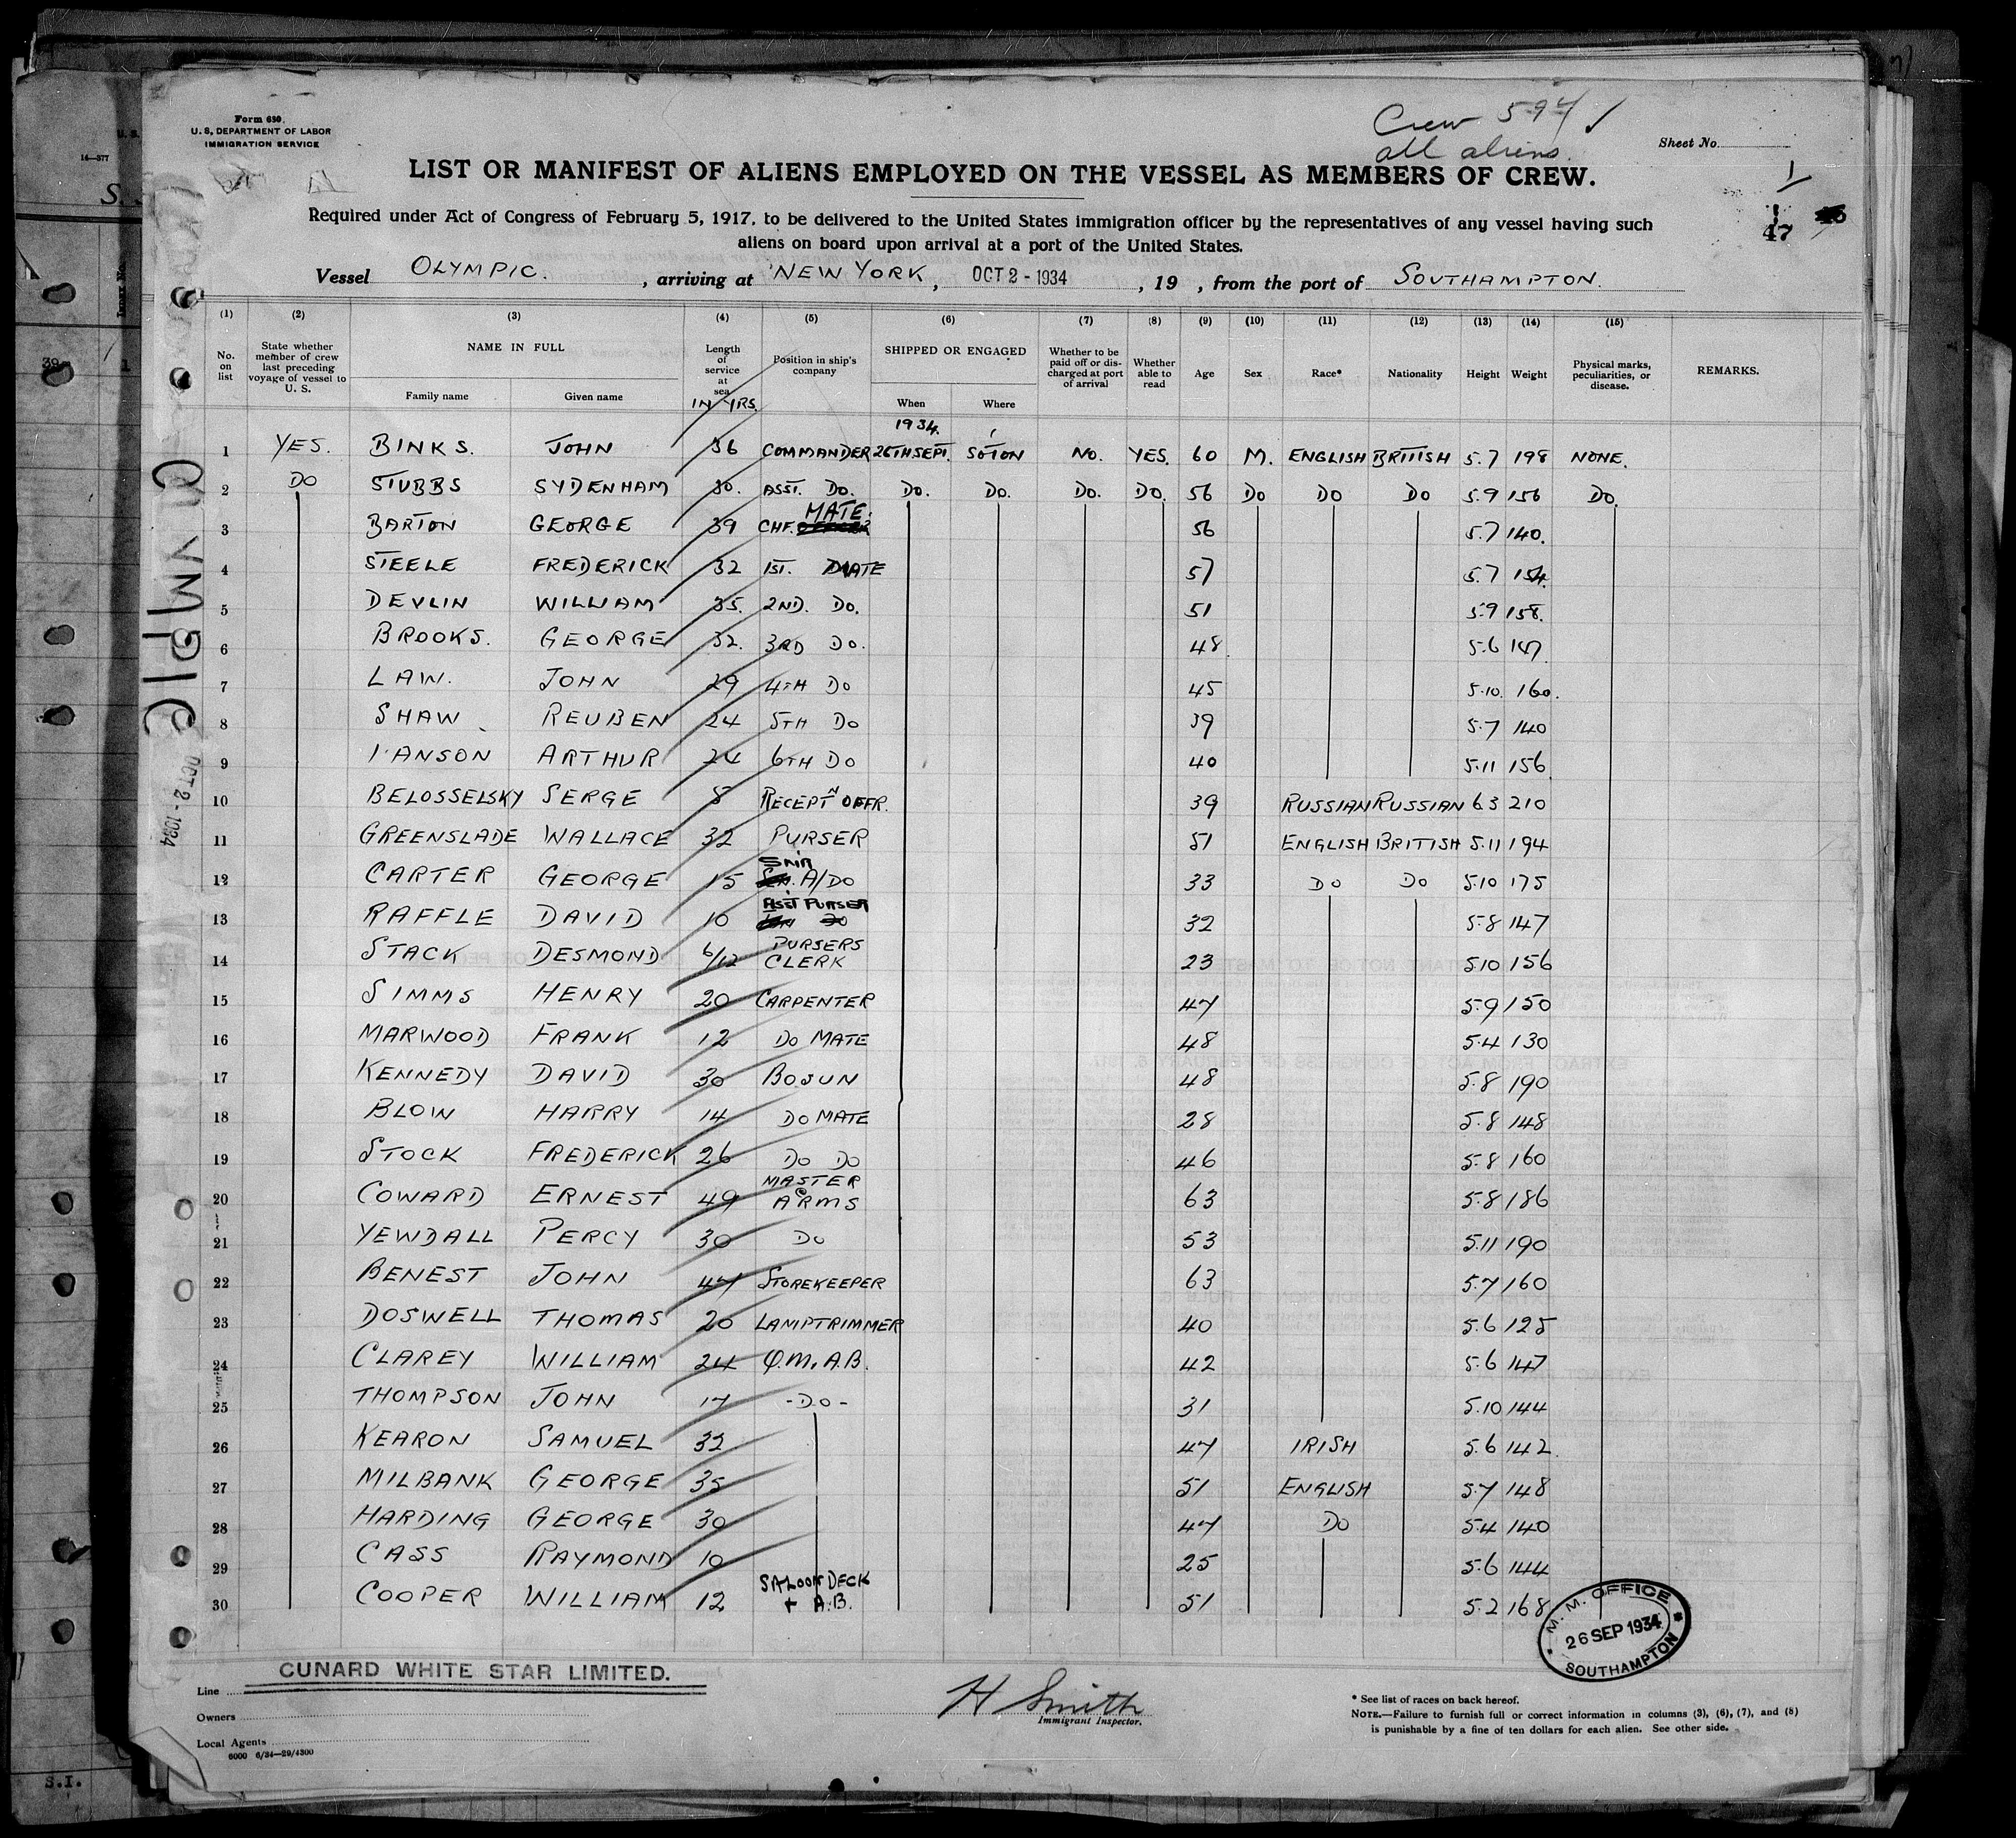 Form 680
U. S. DEPARTMENT OF LABOR
IMMIGRATION SERVICE
Crew 594 ✓
all aliens
Sheet No.
LIST OR MANIFEST OF ALIENS EMPLOYED ON THE VESSEL AS MEMBERS OF CREW.
Required under Act of Congress of February 5, 1917, to be delivered to the United States immigration officer by the representatives of any vessel having such
aliens on board upon arrival at a port of the United States.
47
Vessel OLYMPIC. , arriving at NEW YORK , OCT 2 - 1934 , 19 , from the port of SOUTHAMPTON.
(1) (2) (3) (4) (5) (6) (7) (8) (9) (10) (11) (12) (13) (14) (15)
No. on list State whether member of crew last preceding voyage of vessel to U. S. NAME IN FULL Family name Given name Length of service at sea IN YRS. Position in ship's company SHIPPED OR ENGAGED When Where Whether to be paid off or discharged at port of arrival Whether able to read Age Sex Race* Nationality Height Weight Physical marks, peculiarities, or disease. REMARKS.
1934.
1 YES. BINKS. JOHN 36 COMMANDER 26TH SEPT. SO'TON NO. YES. 60 M. ENGLISH BRITISH 5.7 198 NONE.
2 DO STUBBS SYDENHAM 30. ASST. DO. DO. DO. DO. DO. 56 DO DO DO 5.9 156 DO.
3 BARTON GEORGE 39 CHF. MATE. 56 5.7 140.
4 STEELE FREDERICK 32 1ST. MATE 57 5.7 154.
5 DEVLIN WILLIAM 35. 2ND. DO. 51 5.9 158.
6 BROOKS. GEORGE 32. 3RD DO. 48 5.6 147.
7 LAW. JOHN 29 4TH DO 45 5.10. 160.
8 SHAW REUBEN 24 5TH DO 39 5.7 140
9 I'ANSON ARTHUR 24 6TH DO 40 5.11 156
10 BELOSSELSKY SERGE 8 RECEPTN OFFR. 39 RUSSIAN RUSSIAN 6.3 210
11 GREENSLADE WALLACE 32 PURSER 51 ENGLISH BRITISH 5.11 194
12 CARTER GEORGE 15 SNR A/DO 33 DO DO 5.10 175
13 RAFFLE DAVID 10 ASST PURSER 32 5.8 147
14 STACK DESMOND 6/12 PURSERS CLERK 23 5.10 156
15 SIMMS HENRY 20 CARPENTER 47 5.9 150
16 MARWOOD FRANK 12 DO MATE 48 5.4 130
17 KENNEDY DAVID 30 BOSUN 48 5.8 190
18 BLOW HARRY 14 DO MATE 28 5.8 148
19 STOCK FREDERICK 26 DO DO 46 5.8 160
20 COWARD ERNEST 49 MASTER @ ARMS 63 5.8 186
21 YEWDALL PERCY 30 DO 53 5.11 190
22 BENEST JOHN 47 STOREKEEPER 63 5.7 160
23 DOSWELL THOMAS 20 LAMPTRIMMER 40 5.6 125
24 CLAREY WILLIAM 24 Q.M. A.B. 42 5.6 147
25 THOMPSON JOHN 17 -DO- 31 5.10 144
26 KEARON SAMUEL 32 47 IRISH 5.6 142
27 MILBANK GEORGE 35 51 ENGLISH 5.7 148
28 HARDING GEORGE 30 47 DO 5.4 140
29 CASS RAYMOND 10 25 5.6 144
30 COOPER WILLIAM 12 SALOON DECK + A.B. 51 5.2 168
M. M. OFFICE
26 SEP 1934
SOUTHAMPTON
Line CUNARD WHITE STAR LIMITED.
Owners
Local Agents
6000 6/34—29/4300
H Smith
Immigrant Inspector.
* See list of races on back hereof.
NOTE.—Failure to furnish full or correct information in columns (3), (6), (7), and (8)
is punishable by a fine of ten dollars for each alien. See other side.
OLYMPIC
OCT 2 - 1934
14—577
S.I.